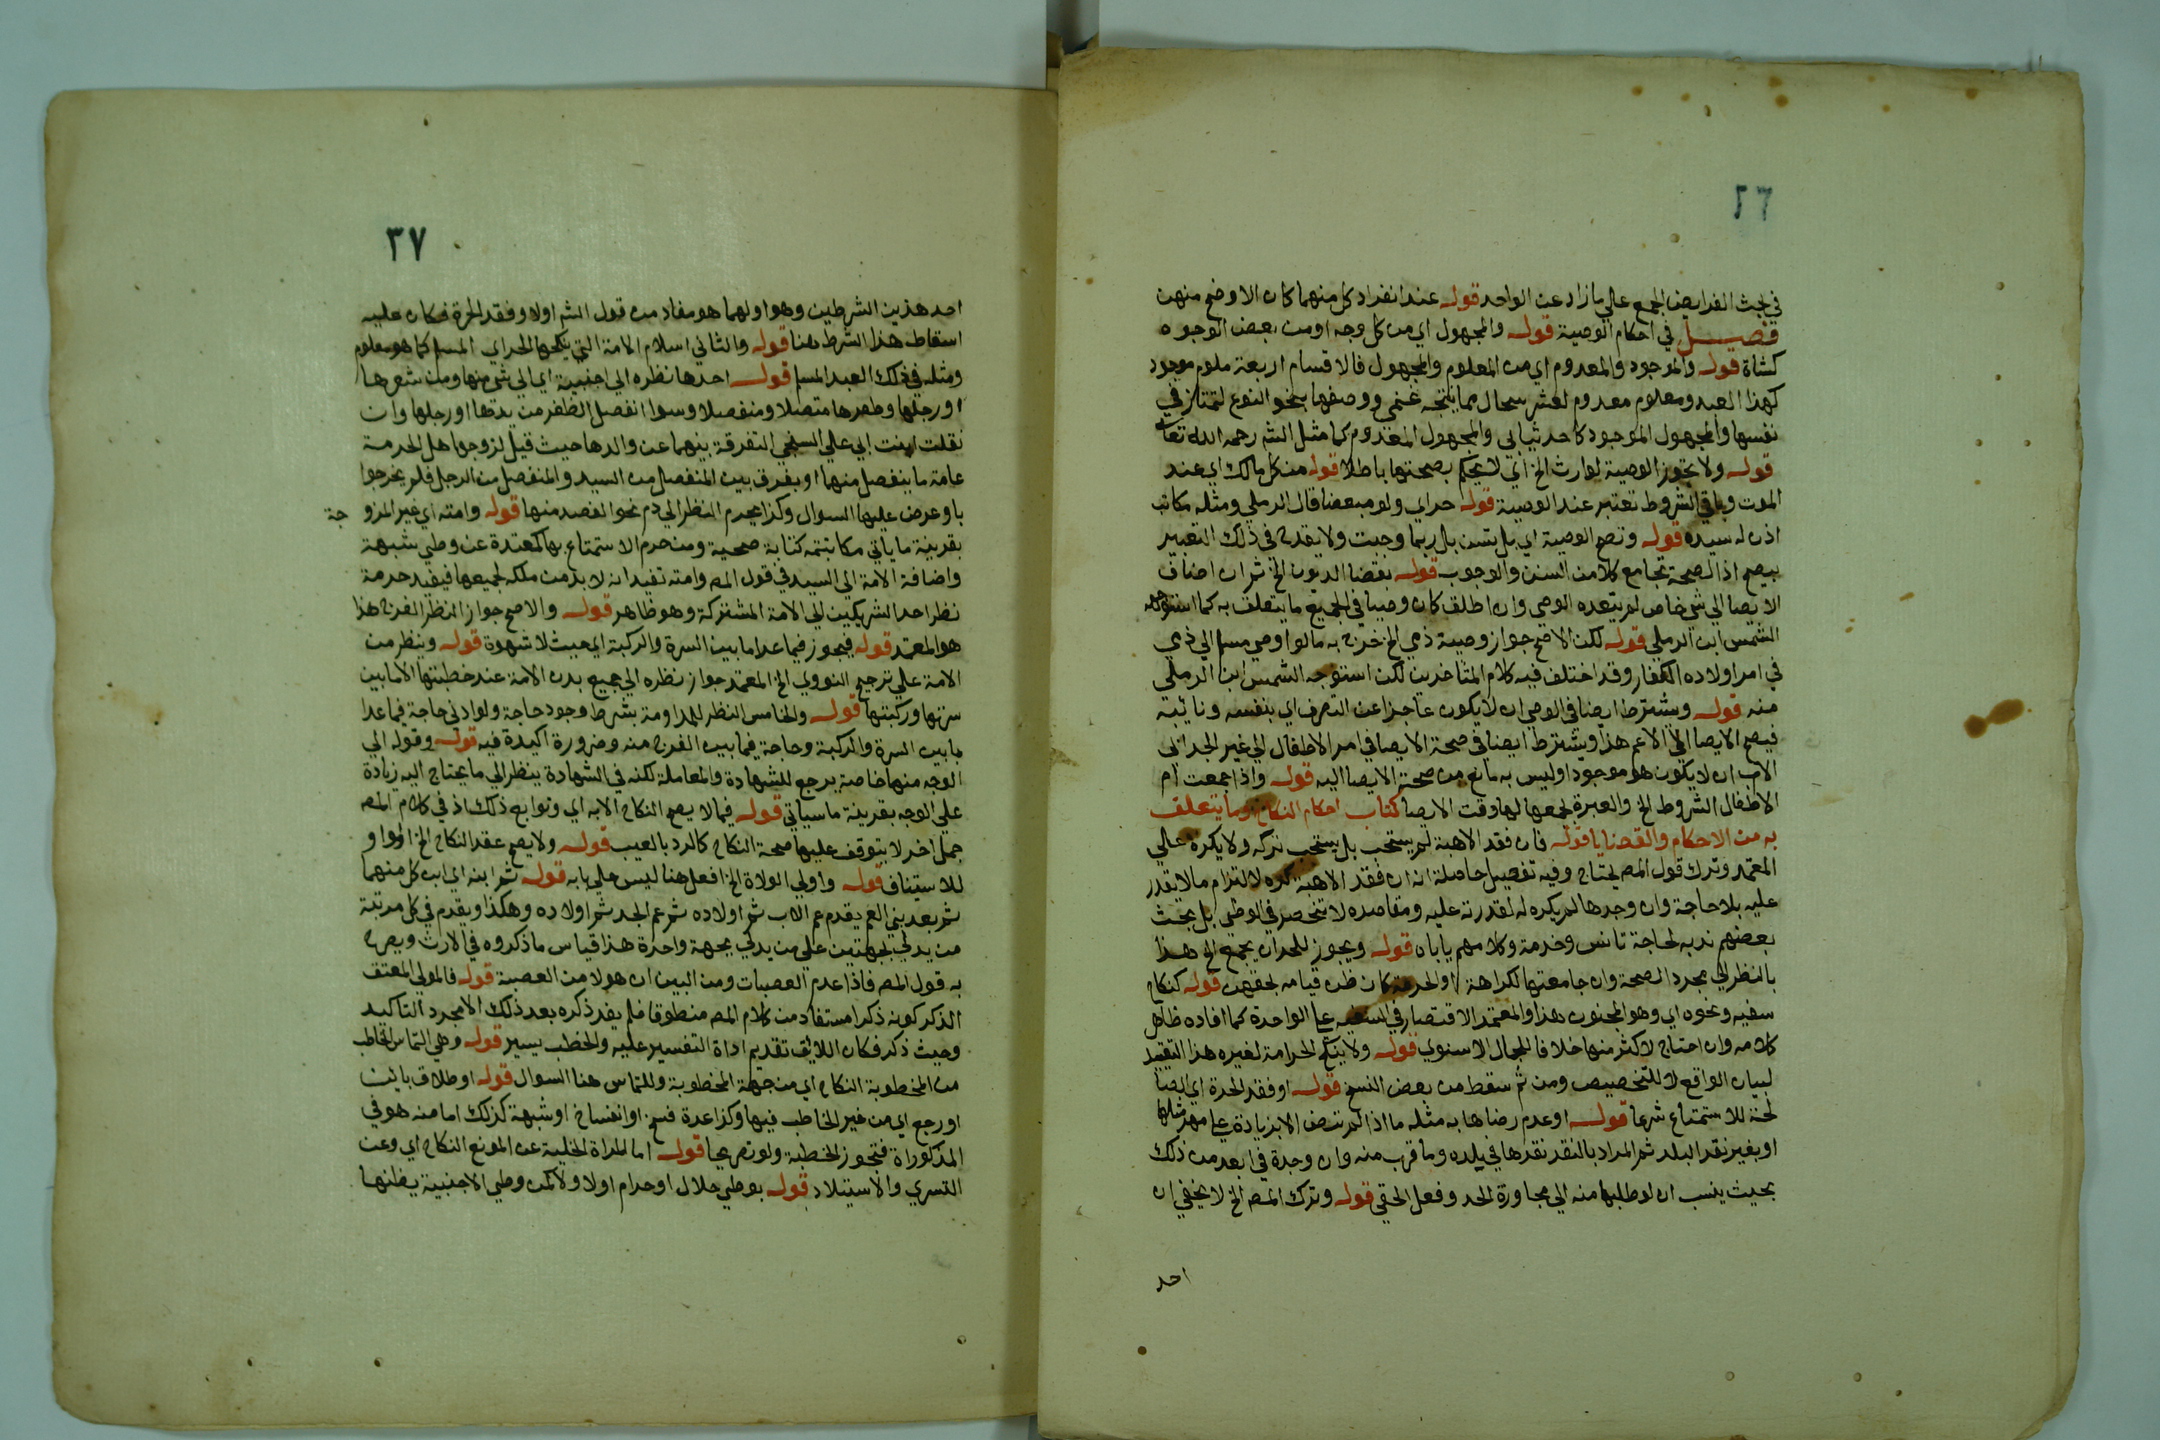 ٢٦
في بحث الفرايض الجمع علي ما زاد عن الواحد قوله عند انفراد كل منهما كان الاوضح منهن
فصل في احكام الوصية قوله والمجهول اي من كل وجه او من بعض الوجوه
كشاة قوله والموجود والمعدوم اي من المعلوم والمجهول فالاقسام اربعة معلوم موجود
كهذا العبد ومعلوم معدوم كعشر سخال مما ينتجه غنمي ووصفها بنحو النوع لتمتاز في
نفسها والمجهول الموجود كاحد ثيابي والمجهول المعدوم كما مثل الشم رحمه الله تعا
قوله ولا تجوز الوصية لوارث الخ اي لا يحكم بصحتها باطلا قوله من كل مالك اي عند
الموت وباقي الشروط تعتبر عند الوصية قوله حر اي ولو مبعضا قال الرملي ومثله مكاتب
اذن له سيده قوله وتصح الوصية اي بل تسن بل ربما وجبت ولا يقدح في ذلك التعبير
بيصح اذ الصحة تجامع كلا من السنن والوجوب قوله بقضا الديون الخ ثم ان اضاف
الايصا الي شي خاص لم يتعده الوصي وان اطلق كان وصيا في الجميع ما يتعلق به كما استوجه
الشمس ابن الرملي قوله لكن الاصح جواز وصية ذمي الخ خرج به ما لو اوصي مسلم الي ذمي
في امر اولاده الكفار وقد اختلف فيه كلام المتاخرين لكن استوجه الشمس ابن الرملي
منه قوله ويشترط ايضا في الوصي ان لا يكون عاجزا عن التصرف اي بنفسه ونائبه
فيصح الايصا الي الاعم هذا ويشترط ايضا في صحة الايصا في امر الاطفال الي غير الجد ابي
الاب ان لا يكون هو موجودا وليس به مانع من صحة الايصا اليه قوله واذا جمعت ام
الاطفال الشروط الخ والعبرة بجمعها لها وقت الايصا كتاب احكام النكاح وما يتعلق
به من الاحكام والقضايا قوله فان فقد الاهبة لم يستحب بل يستحب تركه ولا يكره علي
المعتمد وترك قول المص يحتاج وفيه تفصيل حاصله انه ان فقد الاهبة كره لالتزام ما لا يقدر
عليه بلا حاجة وان وجدها لم يكره له لقدرته عليه ومقاصده لا تنحصر في الوطي بل بحث
بعضهم ندبه لحاجة تانس وخدمة وكلامهم ياباه قوله ويجوز للحر ان يجمع الخ هذا
بالنظر الي مجرد الصحة وان جامعتها لكراهة او الحرمة كان ظن قيامه بحقهن قوله كنكاح
سفيه ونحوه اي وهو المجنون هذا والمعتمد الاقتصار في السفيه علي الواحدة كما افاده ظاهر
كلامه وان احتاج لاكثر منها خلافا للجمال الاسنوي قوله ولا ينكح الحر امة لغيره هذا التقييد
لبيان الواقع لا للتخصيص ومن ثم سقط من بعض النسخ قوله او فقد الحرة اي الصا
لحة للاستمتاع شرعا قوله او عدم رضاها به مثله ما اذا لم ترض الا بزيادة علي مهر مثلها
او بغير نقد البلد ثم المراد بالنقد نقدها في بلده وما قرب منه وان وجدة في ابعد من ذلك
بحيث ينسب ان لو طلبها منه الي مجاورة الحد وفعل الحمقي قوله وترك المص الخ لا يخفي ان
احد
٣٧
احد هذين الشرطين وهو اولهما هو مفاد من قول الشم اولا وفقد الحرة فكان عليه
اسقاط هذا الشرط هنا قوله والثاني اسلام الامة التي ينكحها الحر اي المسلم كما هو معلوم
ومثله في ذلك العبد المسلم قوله احدها نظره الي اجنبية اي الي شي منها ومن شعرها
او رجلها وظفرها متصلا ومنفصلا وسوا انفصل الظفر من يدها او رجلها وان
نقلت ابنت ابي علي السنجي التفرقة بينهما عن والدها حيث قيل لزوجها هل الحرمة
عامة ما ينفصل منهما او يفرق بين المنفصل من السيد والمنفصل من الرجل فلم يخرجوا
با وعرض عليها السوال وكذا يحرم النظر الي دم نحو الفصد منها قوله وامته اي غير المزو
جة
بقرينة ما ياتي مكاتبته كتابة صحيحة ومن حرم الاستمتاع بها كمعتدة عن وطي شبهة
واضافة الامة الي السيد في قول المص وامته تفيد انه لا بد من ملكه لجميعها فيفيد حرمة
نظر احد الشريكين الي الامة المشتركة وهو ظاهر قوله والاصح جواز النظر الفرج هذا
هو المعتمد قوله فيجوز فيما عدا ما بين السرة والركبة اي بحيث لا شهوة قوله وينظر من
الامة علي ترجيح النووي الخ المعتمد جواز نظره الي جميع بدن الامة عند خطبتها الا ما بين
سرتها وركبتها قوله والخامس النظر للمداومة بشرط وجود حاجة ولو ادني حاجة فيما عدا
ما بين السرة والركبة وحاجة فيما بين الفرج منه وضرورة اكيدة فيه قوله وقوله الي
الوجه منها خاصة يرجع للشهادة والمعاملة لكنه في الشهادة ينظر الي ما يحتاج اليه زيادة
علي الوجه بقرينة ما سياتي قوله فيما لا يصح النكاح الا به اي وتوابع ذلك اذ في كلام المص
جمل اخر لا يتوقف عليها صحة النكاح كالرد بالعيب قوله ولا يصح عقد النكاح الخ الواو
للاستيناف قوله واولي الولاة الخ افعل هنا ليس علي بابه قوله ثم ابنه اي ابن كل منهما
ثم بعد بني العم يقدم عم الاب ثم اولاده ثم عم الجد ثم اولاده وهكذا ويقدم في كل مرتبة
من يدلي بجهتين علي من يدلي بجهة واحدة هذا قياس ما ذكروه في الارث ويصرح
به قول المص فاذا عدم العصبات ومن البين ان هولا من العصبة قوله فالمولي المعتق
الذكر كونه ذكرا مستفاد من كلام المص منطوقا فلم يفد ذكره بعد ذلك الا مجرد التاكيد
وحيث ذكر فكان اللائق تقديم اداة التفسير عليه والخطب يسير قوله وهي التماس الخاطب
من المخطوبة النكاح اي من جهة المخطوبة والتماس هنا السوال قوله او طلاق باين
او رجع اي من غير الخاطب فيها وكذا عدة فسخ او انفساخ او شبهة كذلك اما منه هو في
المذكوراة فتجوز الخطبة ولو تصريحا قوله اما المراة الخلية عن المونع النكاح اي وعن
التسري والاستيلاد قوله بوطي حلال او حرام اولا ولا كمن وطي الاجنبية يظنها